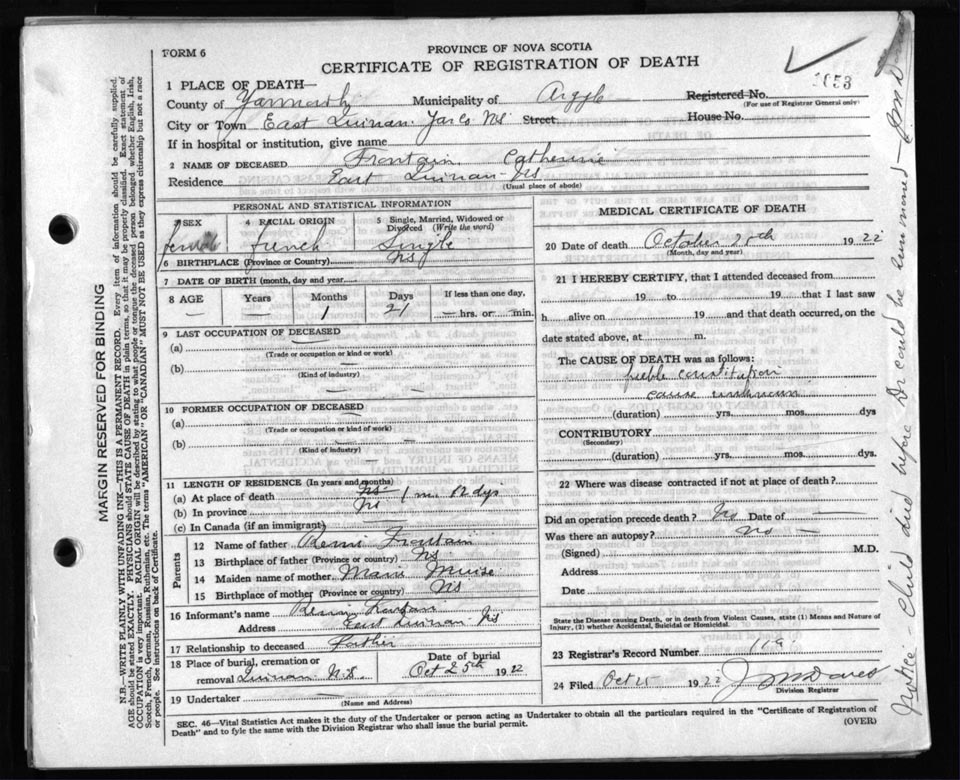 FORM 6
PROVINCE OF NOVA SCOTIA
CERTIFICATE OF REGISTRATION OF DEATH
1053
1 PLACE OF DEATH—
County of Yarmouth Municipality of Argyle Registered No.
(For use of Registrar General only)
City or Town East Quinan Yar Co NS Street: House No.
If in hospital or institution, give name
2 NAME OF DECEASED Frontain Catherine
Residence East Quinan NS
(Usual place of abode)
PERSONAL AND STATISTICAL INFORMATION
3 SEX female
4 RACIAL ORIGIN french
5 Single, Married, Widowed or Divorced (Write the word) Single
6 BIRTHPLACE (Province or Country) NS
7 DATE OF BIRTH (month, day and year)
8 AGE Years Months Days If less than one day,
— — 1 21 — hrs. or — min.
9 LAST OCCUPATION OF DECEASED
(a) —
(Trade or occupation or kind or work)
(b) —
(Kind of industry)
10 FORMER OCCUPATION OF DECEASED
(a) —
(Trade or occupation or kind of work)
(b) —
(Kind of industry)
11 LENGTH OF RESIDENCE (In years and months)
(a) At place of death NS 1 m. dys
(b) In province NS
(c) In Canada (if an immigrant) —
Parents
12 Name of father Remi Frontain
13 Birthplace of father (Province or country) NS
14 Maiden name of mother Marie Muise
15 Birthplace of mother (Province or country) NS
16 Informant's name Remi
Address East Quinan NS
17 Relationship to deceased father
18 Place of burial, cremation or removal Quinan N.S. Date of burial Oct 25th 1922
19 Undertaker —
(Name and Address)
MEDICAL CERTIFICATE OF DEATH
20 Date of death October 1922
(Month, day and year)
21 I HEREBY CERTIFY, that I attended deceased from
19 to 19 that I last saw
h alive on 19 and that death occurred, on the
date stated above, at m.
The CAUSE OF DEATH was as follows:
feeble constitution
cause unknown
(duration) yrs. mos. dys
CONTRIBUTORY
(Secondary)
(duration) yrs. mos. dys.
22 Where was disease contracted if not at place of death?
Did an operation precede death? No Date of —
Was there an autopsy? No —
(Signed) M.D.
Address
Date
State the Disease causing Death, or in death from Violent Causes, state (1) Means and Nature of Injury, (2) whether Accidental, Suicidal or Homicidal.
23 Registrar's Record Number
24 Filed Oct 25 1922
Division Registrar
SEC. 46—Vital Statistics Act makes it the duty of the Undertaker or person acting as Undertaker to obtain all the particulars required in the "Certificate of Registration of
Death" and to fyle the same with the Division Registrar who shall issue the burial permit.
(OVER)
MARGIN RESERVED FOR BINDING
N.B.—WRITE PLAINLY WITH UNFADING INK—THIS IS A PERMANENT RECORD. Every item of information should be carefully supplied.
AGE should be stated EXACTLY. PHYSICIANS should STATE CAUSE OF DEATH in plain terms, so that it may be properly classified. Exact statement of
OCCUPATION is very important. RACIAL ORIGIN will be described by stating to what people or tongue the deceased person belonged whether English, Irish,
Scotch, French, German, Russian, Ruthenian, etc. The terms "AMERICAN" OR "CANADIAN" MUST NOT BE USED as they express citizenship but not a race
or people. See instructions on back of Certificate.
Notice - Child died before Dr could be summoned -